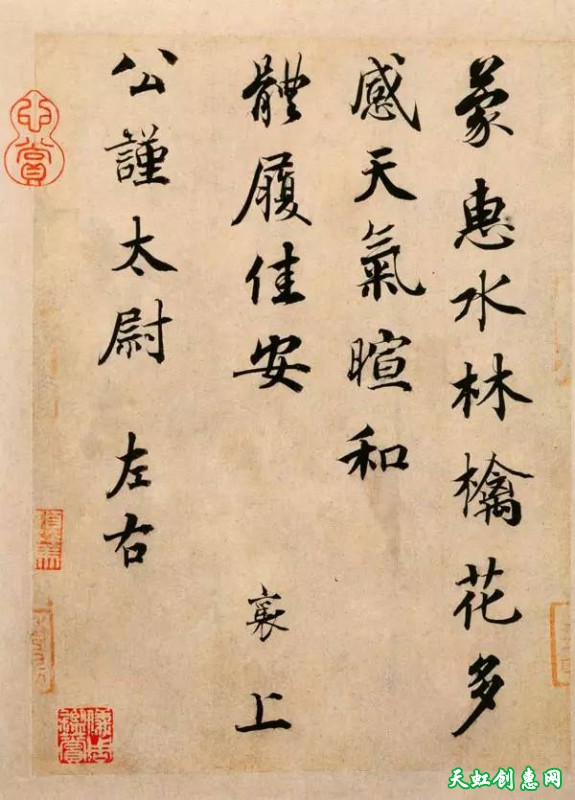 蒙惠水林檎花多
感天氣暄和
體履佳安 襄上
公謹太尉 左右
天虹创惠网